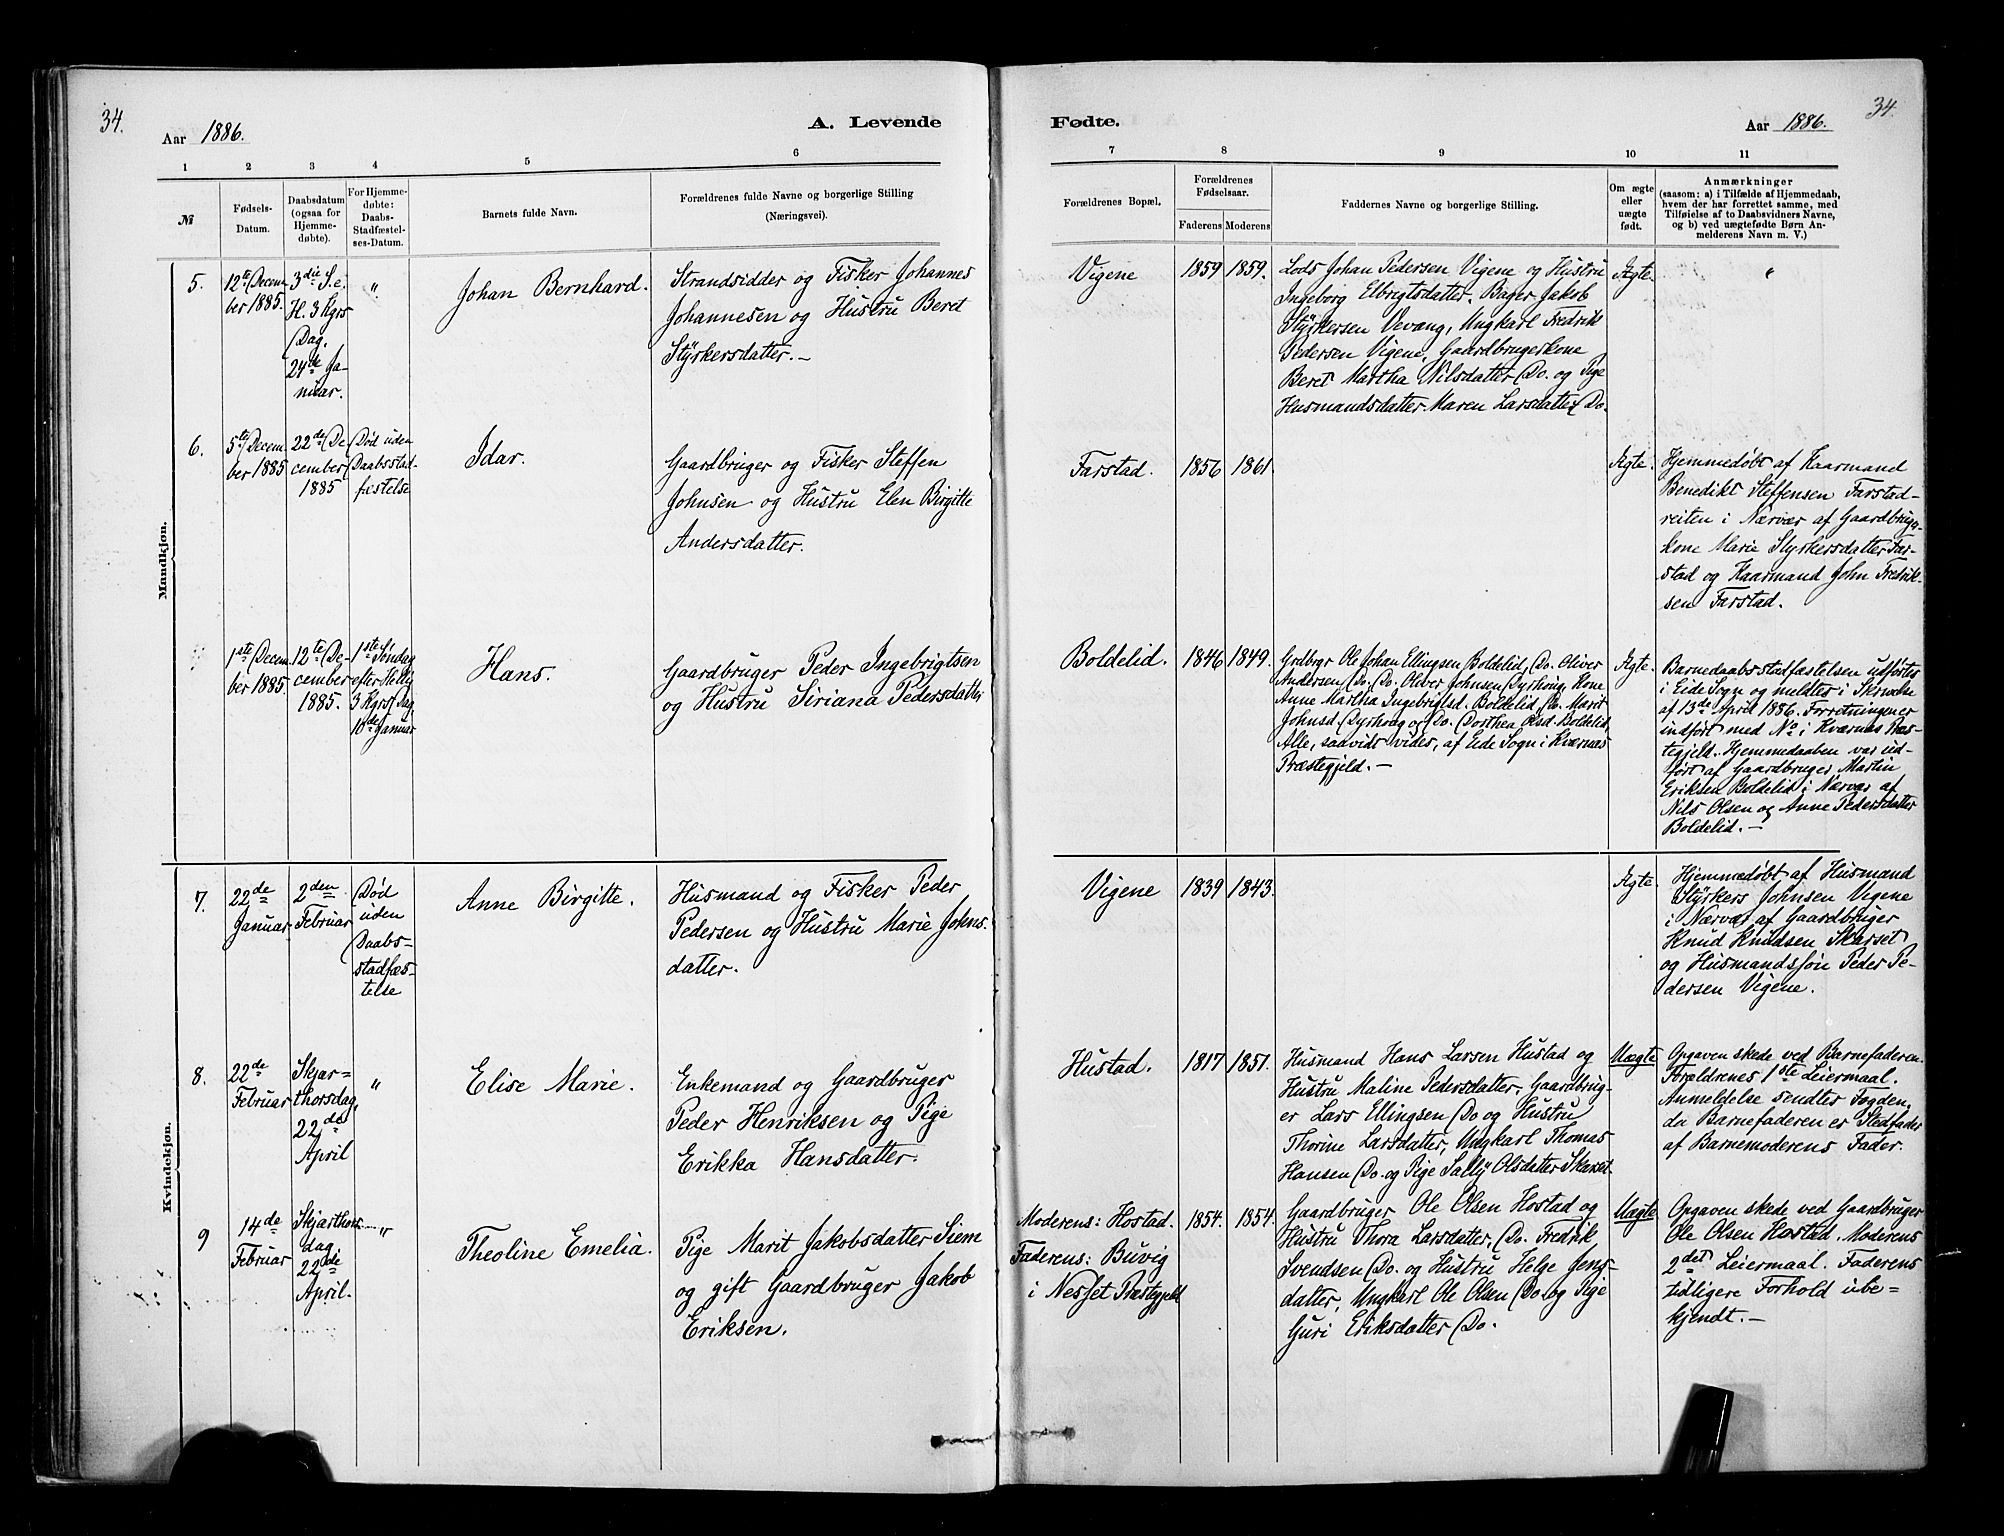 34.
Aar 1886.
A. Levende
Fødte.
Aar 1886.
34.
1
2
3
4
5
6
7
8
9
10
11
№
Fødsels-
Datum.
Daabsdatum
(ogsaa for
Hjemme-
døbte).
For Hjemme-
døbte:
Daabs-
Stadfæstel-
ses-Datum.
Barnets fulde Navn.
Forældrenes fulde Navne og borgerlige Stilling
(Næringsvei).
Forældrenes Bopæl.
Forældrenes
Fødselsaar.
Faderens
Moderens
Faddernes Navne og borgerlige Stilling.
Om ægte
eller
uægte
født.
Anmærkninger
(saasom: a) i Tilfælde af Hjemmedaab,
hvem der har forrettet samme, med
Tilføielse af to Daabsvidners Navne,
og b) ved uægtefødte Børn An-
melderens Navn m. V.)
Mandkjøn.
5.
12te Decem-
ber 1885.
3die S. e.
H. 3 Kgrs
Dag.
24de Ja-
nuar.
"
Johan Bernhard.
Strandsidder og Fisker Johannes
Johannesen og Hustru Beret
Stÿrkersdatter.-
Vigene
1859
1859.
Lods Johan Pedersen Vigene og Hustru
Ingeborg Elbrigtsdatter. Bager Jakob
Stÿrkersen Vevang, Ungkarl Fredrik
Pedersen Vigene, Gaardbrugerkone
Beret Martha Nilsdatter Do. og Pige
Husmandsdatter Maren Larsdatter Do.
Ægte.
"
6.
5te Decem-
ber 1885
22de De-
cember
1885
Død uden
Daabsstad-
fæstelse
Idar.
Gaardbruger og Fisker Steffen
Johnsen og Hustru Elen Birgitte
Andersdatter.
Farstad.
1856
1861.
Ægte.
Hjemmedøbt af Kaarmand
Benedikt Steffensen Farstad-
reiten i Nærvær af Gaardbruger-
kone Marie Styrkersdatter Far-
stad og Kaarmand John Fredrik-
sen Farstad.
1ste Decem-
ber 1885.
12te De-
cember
1885.
1ste Søndag
efter Hellig
3 Kgrs Dag
10de Januar
Hans.
Gaardbruger Peder Ingebrigtsen
og Hustru Siriana Pedersdatter
Boldelid.
1846
1849.
Grdbrgr Ole Johan Ellingsen Boldelid, Do. Oliver
Andersen Do. Do. Oliver Johnsen Dyrhoug. Kone
Anne Martha Ingebrigtsd. Boldelid, Do. Marit
Johnsd. Dyrhoug og Do. Dorthea Olsd. Boldelid,
Alle, saavidt vides, af Eide Sogn i Kværnæs
Præstegjeld.-
Ægte.
Barnedaabsstadfæstelsen udførtes
i Eide Sogn og meldtes i Skrivelse
af 13de April 1886. Forretningen er
indført med No i Kværnæs Præs-
tegjeld. Hjemmedaaben var ud-
ført af Gaardbruger Martin
Eriksen Boldelid i Nærvær af
Nils Olsen og Anne Pedersdatter
Boldelid.-
Kvindekjøn.
7.
22de
Januar
2den
Februar
Død
uden
Daabs-
stadfæs-
telse
Anne Birgitte.
Husmand og Fisker Peder
Pedersen og Hustru Marie Johns-
datter.
Vigene
1839
1843.
Ægte.
Hjemmedøbt af Husmand
Stÿrkers Johnsen Vigene
i Nærvær af Gaardbruger
Knud Knudsen Skarset
og Husmandssøn Peder Pe-
dersen Vigene.
8.
22de
Februar
Skjær-
thorsdag,
22de
April
"
Elise Marie.
Enkemand og Gaardbruger
Peder Henriksen og Pige
Erikka Hansdatter.
Hustad.
1817
1851.
Husmand Hans Larsen Hustad og
Hustru Maline Pedersdatter, Gaardbrug-
er Lars Ellingsen Do og Hustru
Thorine Larsdatter, Ungkarl Thomas
Hansen Do. og Pige Sallÿ Olsdatter Skarset.
Uægte
Opgaven skede ved Barnefaderen.
Forældrenes 1ste Leiermaal.
Anmeldelse sendtes Fogden,
da Barnefaderen er Stedfader
af Barnemoderens Fader.
9
14de
Februar
Skjærthors-
dag
22de
April.
"
Theoline Emelia.
Pige Marit Jakobsdatter Siem
og gift Gaardbruger Jakob
Eriksen.
Moderens: Hostad.
Faderens: Buvig
i Nesset Præstegjeld
1854.
1854.
Gaardbruger Ole Olsen Hostad og
Hustru Thora Larsdatter, Do. Fredrik
Svendsen Do. og Hustru Helge Jens-
datter, Ungkarl Ole Olsen Do. og Pige
Guri Eriksdatter Do.
Uægte
Opgaven skede ved Gaardbruger
Ole Olsen Hostad. Moderens
2det Leiermaal. Faderens
tidligere Forhold ube-
kjendt.-